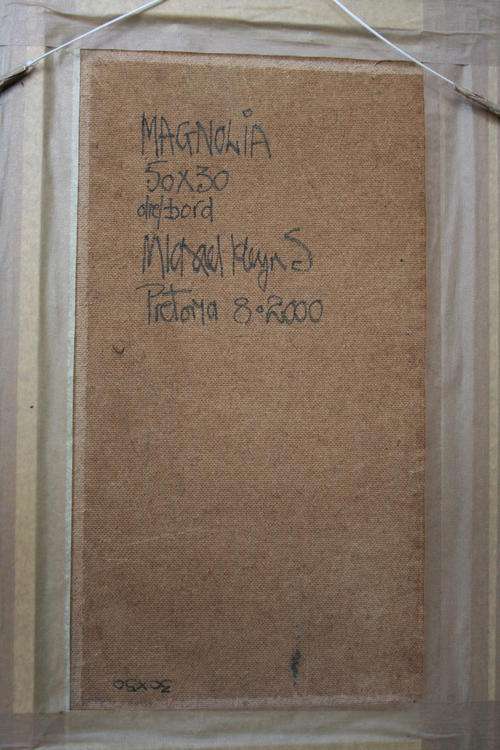 MAGNOLIA
50X30
olie/bord
Michael Heyns
Pretoria 8.2000
30X50